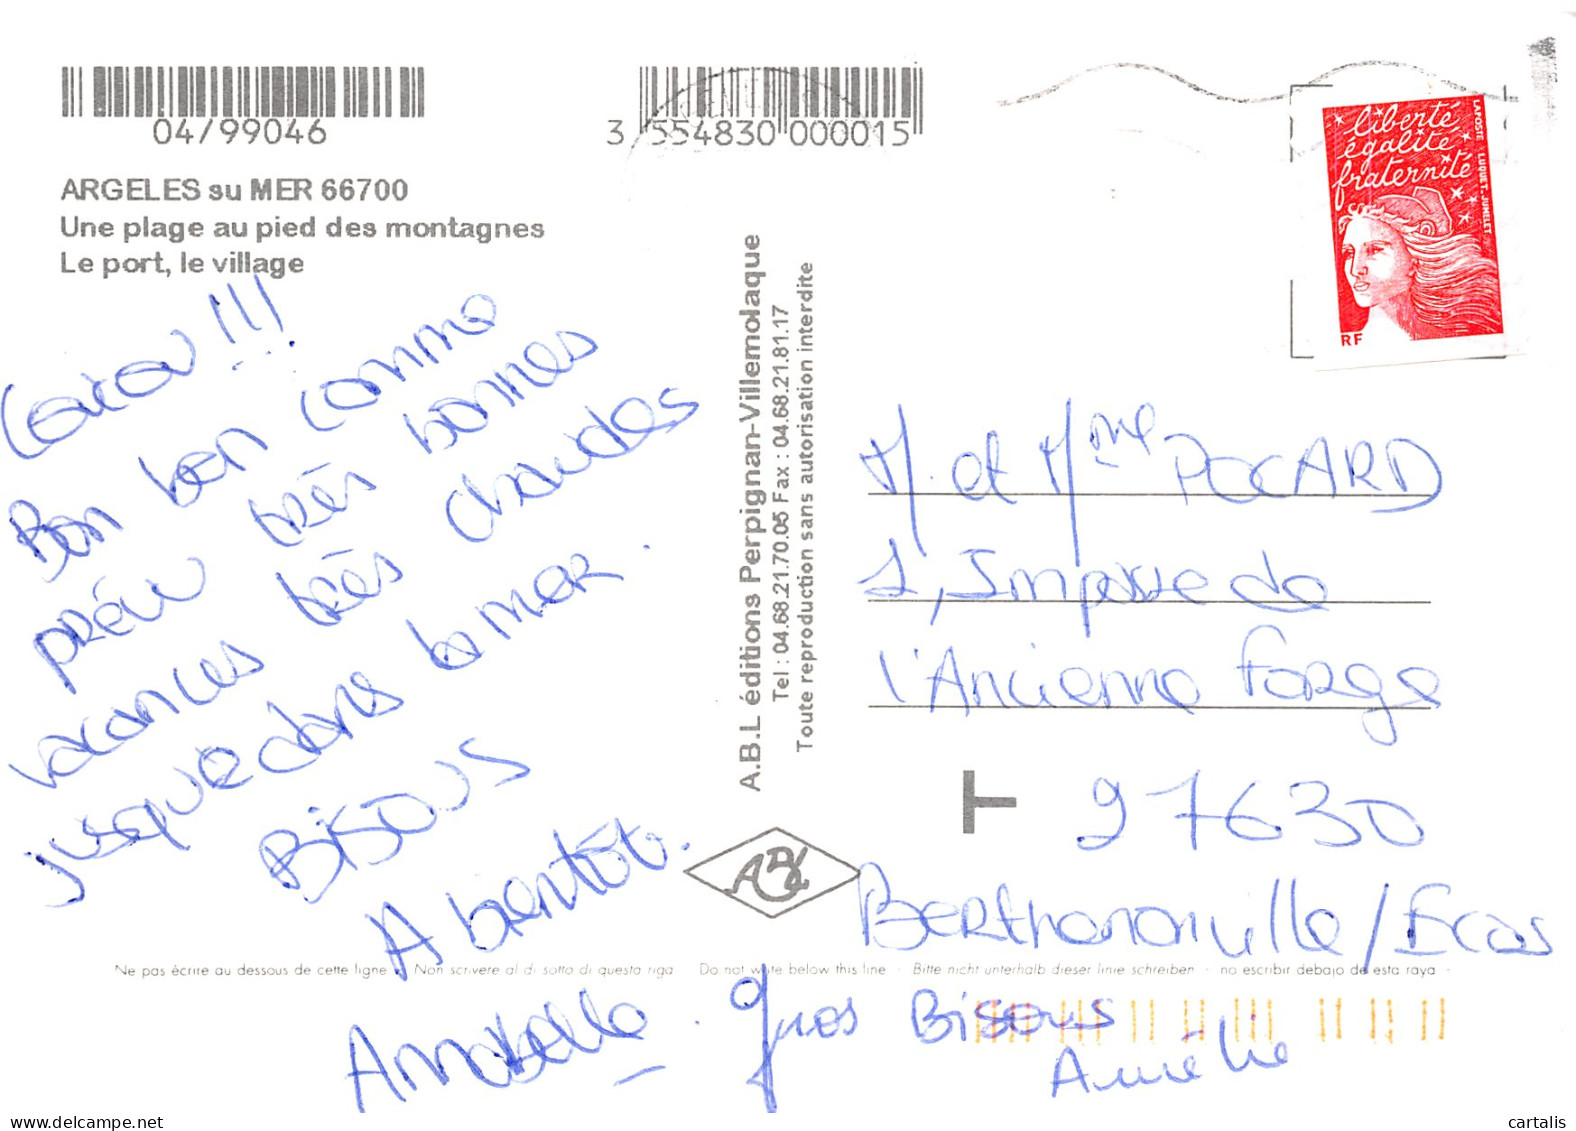 04/99046
3 554830 000015
ARGELES su MER 66700
Une plage au pied des montagnes
Le port, le village
Coucou !!!
Bon ben comme
prévu très bonnes
vacances très chaudes
jusque dans la mer.
Bisous
A bientôt.
Annabelle.
gros Bisous
Amélie
A.B.L éditions Perpignan-Villemolaque
Tel : 04.68.21.70.05 Fax : 04.68.21.81.17
Toute reproduction sans autorisation interdite
ABL
liberté
égalité
fraternité
LAPOSTE LUQUET-JUMELET
RF
M. et Mme POCARD
2, Impasse de
l'Ancienne Forge
T
27630
Berthenonville / Ecos
Ne pas écrire au dessous de cette ligne - Non scrivere al di sotto di questa riga Do not write below this line - Bitte nicht unterhalb dieser linie schreiben - no escribir debajo de esta raya -
delcampe.net
cartalis